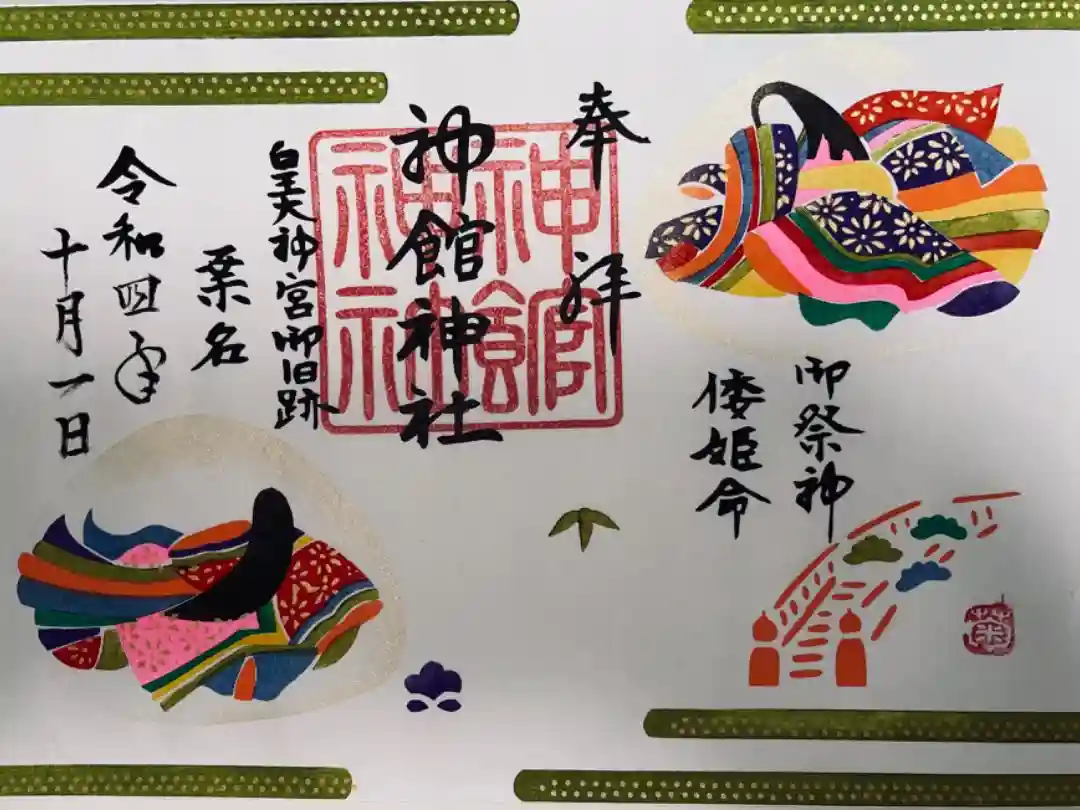 奉拝
御祭神
倭姫命
神館神社
神館神社
皇大神宮御旧跡
桑名
令和四年
十月一日
菊